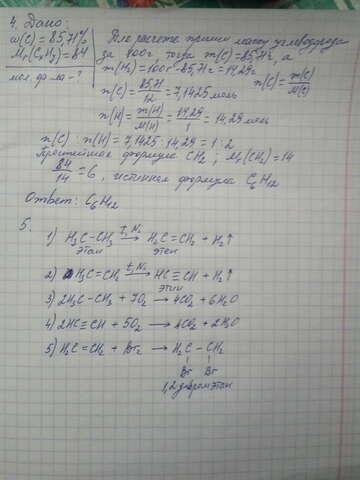 4. Дано:
ω(C) = 85,71%
Mr(CxHy) = 84
мол. ф-ла - ?
Для расчета примем массу углеводорода
за 100г, тогда m(C) = 85,71г, а
m(H₂) = 100г - 85,71г = 14,29г
n(C) = m(C)/M(C)
n(C) = 85,71/12 = 7,1425 моль
n(H) = m(H)/M(H) = 14,29/1 = 14,29 моль
n(C) : n(H) = 7,1425 : 14,29 = 1 : 2
Простейшая формула CH₂ ; Mr(CH₂) = 14
84/14 = 6, истинная формула C₆H₁₂
Ответ: C₆H₁₂
5.
1) H₃C – CH₃ t, Ni → H₂C = CH₂ + H₂↑
этан этен
2) H₂C = CH₂ t, Ni → HC ≡ CH + H₂↑
этин
3) 2H₃C – CH₃ + 7O₂ → 4CO₂ + 6H₂O
4) 2HC ≡ CH + 5O₂ → 4CO₂ + 2H₂O
5) H₂C = CH₂ + Br₂ → H₂C – CH₂
Br Br
1,2 дибромэтан